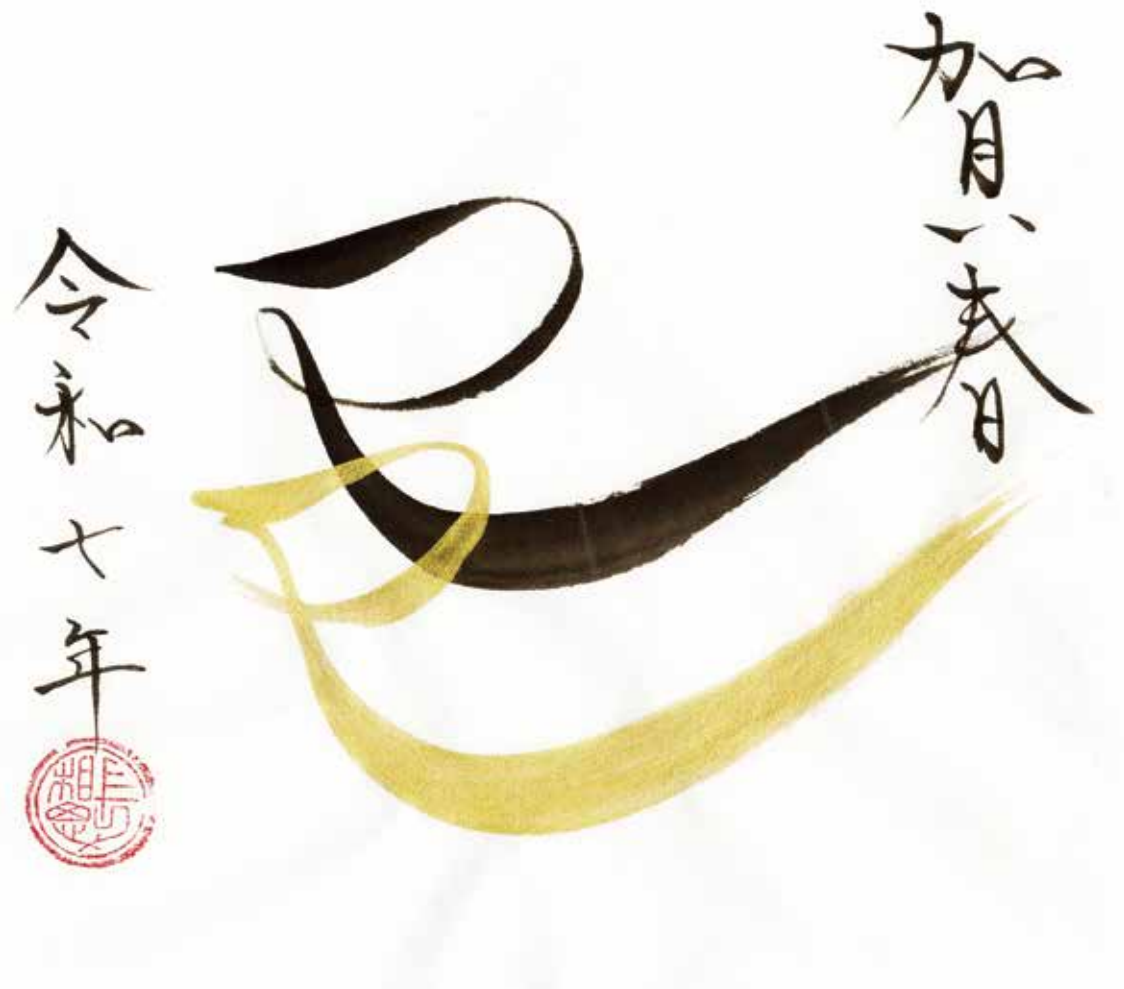 賀春
巳
巳
令和七年